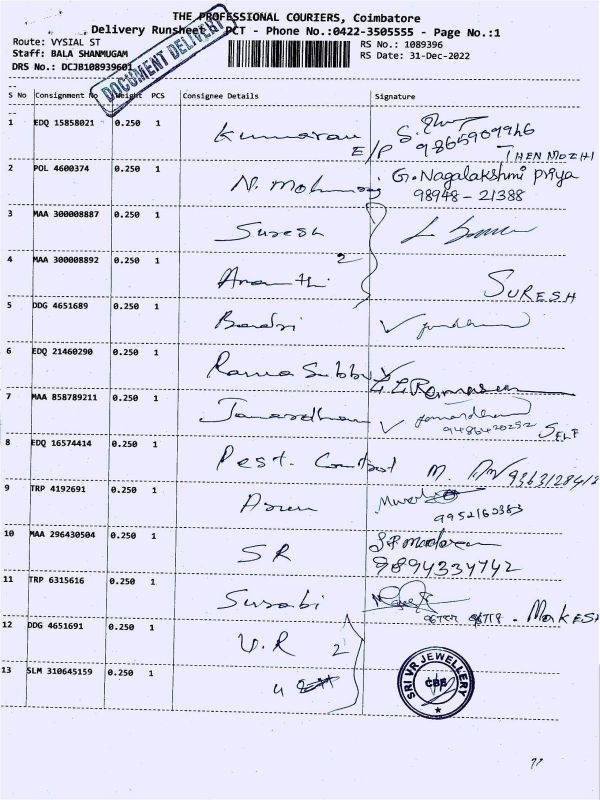 THE PROFESSIONAL COURIERS, Coimbatore
Delivery Runsheet PCT - Phone No.:0422-3505555 - Page No.:1
DOCUMENT DELIVERY
Route: VYSIAL ST
RS No.: 1089396
Staff: BALA SHANMUGAM
RS Date: 31-Dec-2022
DRS No.: DCJB108939601
S No Consignment No Weight PCS Consignee Details Signature
1 EDQ 15858021 0.250 1 Kumaran E/P 9865909946
THEN MOZHI
2 POL 4600374 0.250 1 N. G. Nagalakshmi Priya
98948 - 21388
3 MAA 300008887 0.250 1 Suresh
4 MAA 300008892 0.250 1 Ananthi 2 SURESH
5 DDG 4651689 0.250 1 Badri
6 EDQ 21460290 0.250 1 Rama Subbu
7 MAA 858789211 0.250 1 Janardhan
9486420252 SELF
8 EDQ 16574414 0.250 1 Pest. Control M.
9 TRP 4192691 0.250 1 Arun
9952160383
10 MAA 296430504 0.250 1 SR
9894334742
11 TRP 6315616 0.250 1 Surabi
MOKESH
12 DDG 4651691 0.250 1 V.R 2
13 SLM 310645159 0.250 1 4
SRI VR JEWELLERY
CBE